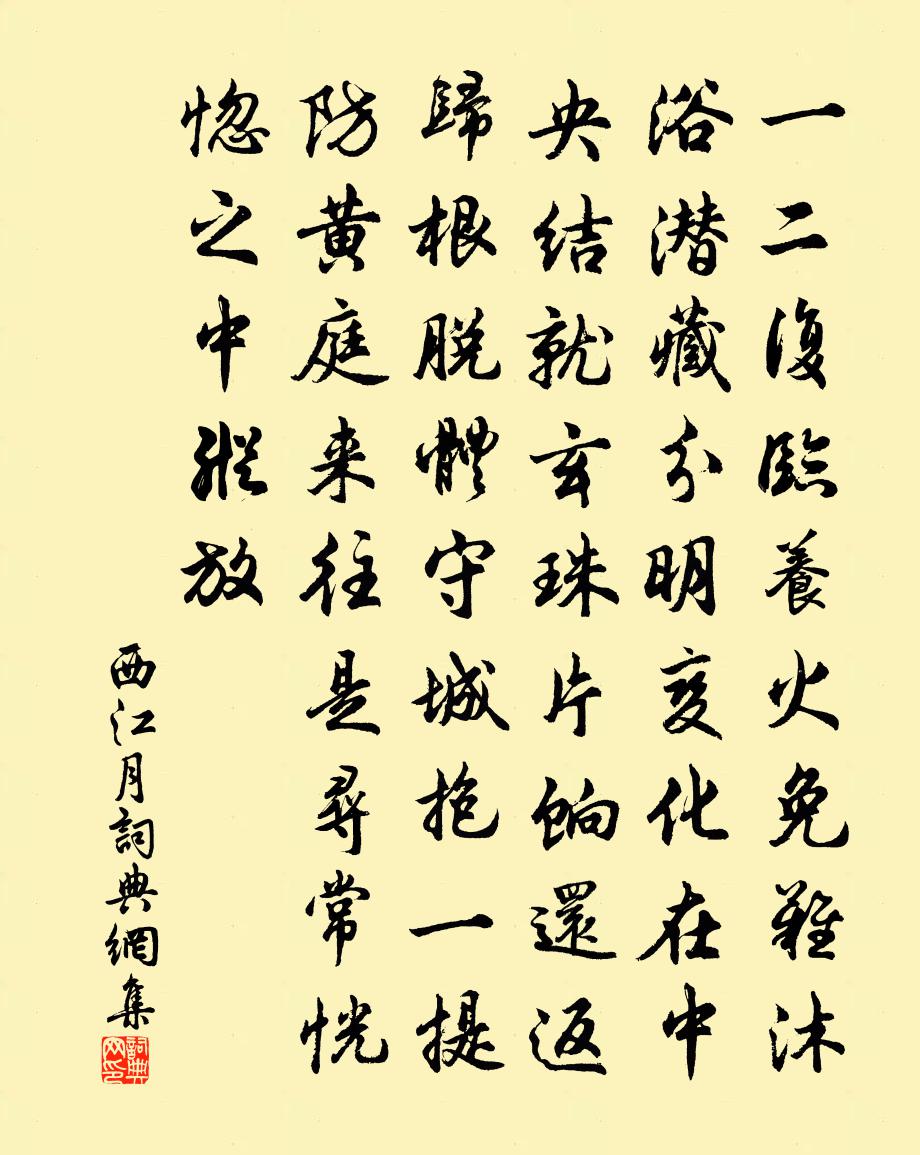 一二復臨養火免難沐
浴潜藏分明变化在中
央结就玄珠片餉還返
歸根脱體守城抱一提
防黄庭来往是尋常恍
惚之中縱放
西江月詞典網集
詞典网印